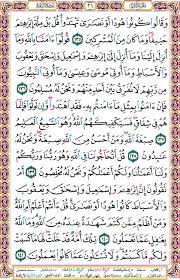 وَقَالُوا۟ كُونُوا۟ هُودًا أَوْ نَصَٰرَىٰ تَهْتَدُوا۟ قُلْ بَلْ مِلَّةَ إِبْرَٰهِـۧمَ
حَنِيفًا وَمَا كَانَ مِنَ ٱلْمُشْرِكِينَ ١٣٥ قُولُوٓا۟ ءَامَنَّا بِٱللَّهِ وَمَآ
أُنزِلَ إِلَيْنَا وَمَآ أُنزِلَ إِلَىٰٓ إِبْرَٰهِـۧمَ وَإِسْمَٰعِيلَ وَإِسْحَٰقَ وَيَعْقُوبَ
وَٱلْأَسْبَاطِ وَمَآ أُوتِىَ مُوسَىٰ وَعِيسَىٰ وَمَآ أُوتِىَ ٱلنَّبِيُّونَ
مِن رَّبِّهِمْ لَا نُفَرِّقُ بَيْنَ أَحَدٍ مِّنْهُمْ وَنَحْنُ لَهُۥ مُسْلِمُونَ ١٣٦
فَإِنْ ءَامَنُوا۟ بِمِثْلِ مَآ ءَامَنتُم بِهِۦ فَقَدِ ٱهْتَدَوا۟ وَّإِن تَوَلَّوْا۟
فَإِنَّمَا هُمْ فِى شِقَاقٍ فَسَيَكْفِيكَهُمُ ٱللَّهُ وَهُوَ ٱلسَّمِيعُ ٱلْعَلِيمُ ١٣٧
صِبْغَةَ ٱللَّهِ وَمَنْ أَحْسَنُ مِنَ ٱللَّهِ صِبْغَةً وَنَحْنُ لَهُۥ
عَٰبِدُونَ ١٣٨ قُلْ أَتُحَآجُّونَنَا فِى ٱللَّهِ وَهُوَ رَبُّنَا وَرَبُّكُمْ
وَلَنَآ أَعْمَٰلُنَا وَلَكُمْ أَعْمَٰلُكُمْ وَنَحْنُ لَهُۥ مُخْلِصُونَ ١٣٩
أَمْ تَقُولُونَ إِنَّ إِبْرَٰهِـۧمَ وَإِسْمَٰعِيلَ وَإِسْحَٰقَ وَيَعْقُوبَ
وَٱلْأَسْبَاطَ كَانُوا۟ هُودًا أَوْ نَصَٰرَىٰ قُلْ ءَأَنتُمْ أَعْلَمُ أَمِ ٱللَّهُ
وَمَنْ أَظْلَمُ مِمَّن كَتَمَ شَهَٰدَةً عِندَهُۥ مِنَ ٱللَّهِ وَمَا ٱللَّهُ
بِغَٰفِلٍ عَمَّا تَعْمَلُونَ ١٤٠ تِلْكَ أُمَّةٌ قَدْ خَلَتْ لَهَا مَا كَسَبَتْ
وَلَكُم مَّا كَسَبْتُمْ وَلَا تُسْـَٔلُونَ عَمَّا كَانُوا۟ يَعْمَلُونَ ١٤١